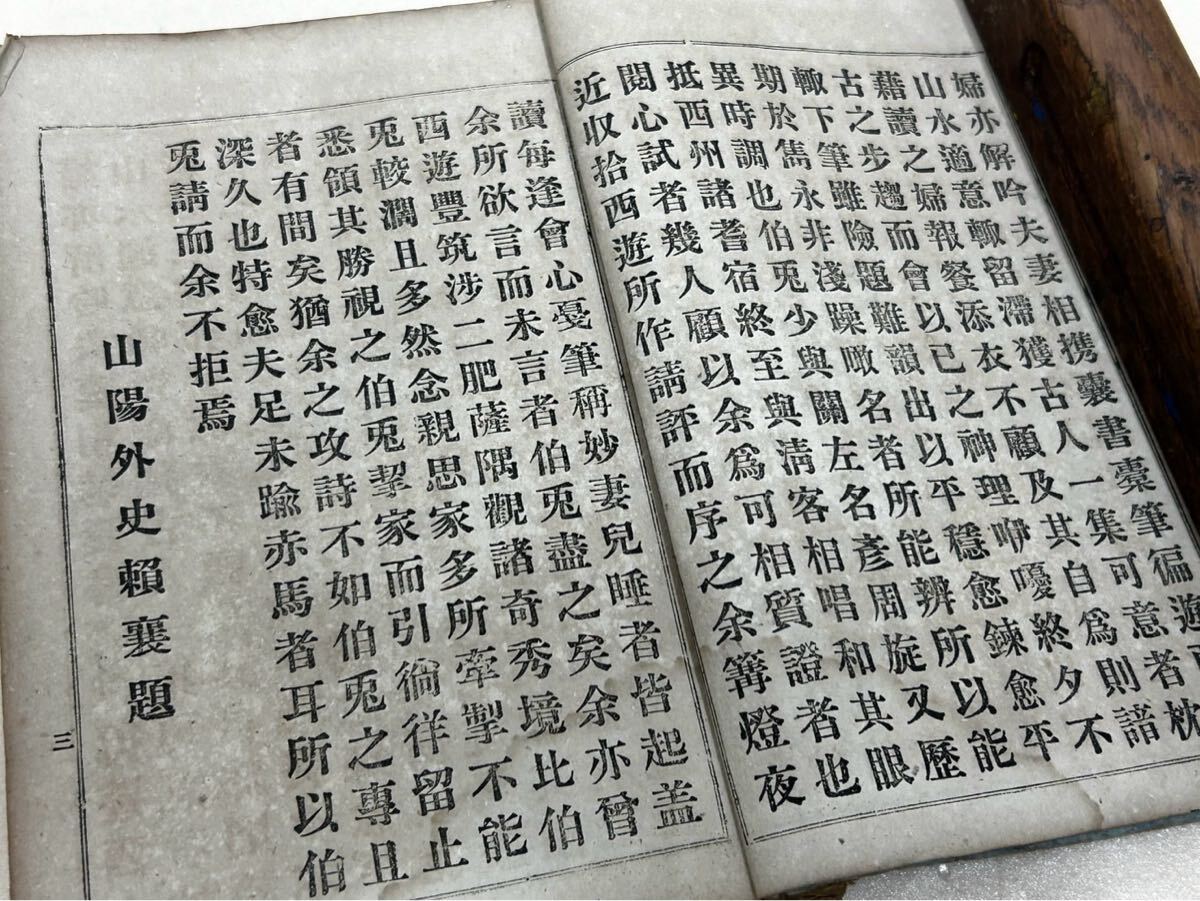 婦亦解吟夫妻相携囊書橐筆徧遊西
山水適意輙留滯獲古人一集可意者枕
藉讀之婦報餐添衣不顧及其自爲則諸
古之步趨而會以已之神理咿嚘終夕不
輙下筆雖險題難韻出以平穩愈鍊愈平
期於雋永非淺躁噉名者所能辨所以能
異時調也伯兎少與關左名彥周旋又歷
抵西州諸耆宿終至與淸客相唱和其眼
閱心試者幾人顧以余爲可相質證者也
近収拾西遊所作請評而序之余篝燈夜
讀每逢會心戞筆稱妙妻兒睡者皆起盖
余所欲言而未言者伯兎盡之矣余亦曾
西遊豐筑涉二肥薩隅觀諸奇秀境比伯
兎較濶且多然念親思家多所牽掣不能
悉領其勝視之伯兎挈家而引徜徉留止
者有間矣猶余之攻詩不如伯兎之專且
深久也特愈夫足未踰赤馬者耳所以伯
兎請而余不拒焉
山陽外史賴襄題
三